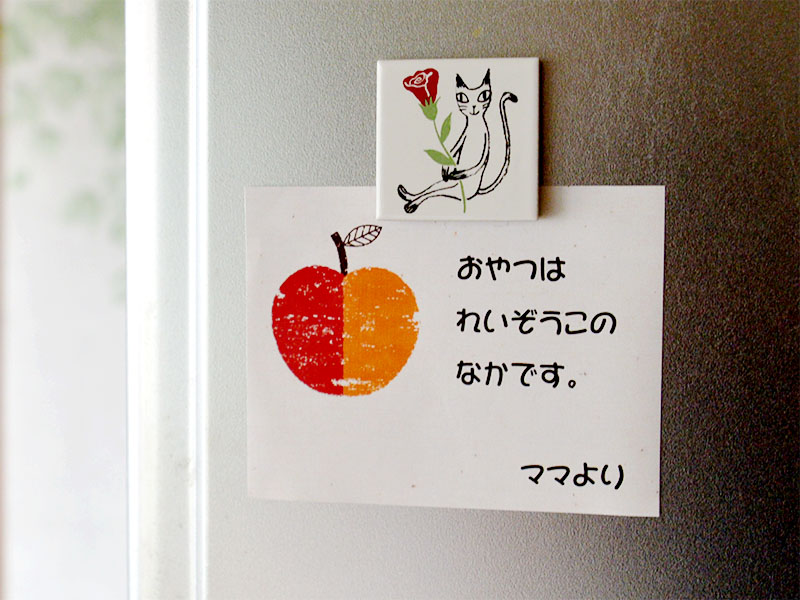 おやつは
れいぞうこの
なかです。
ママより